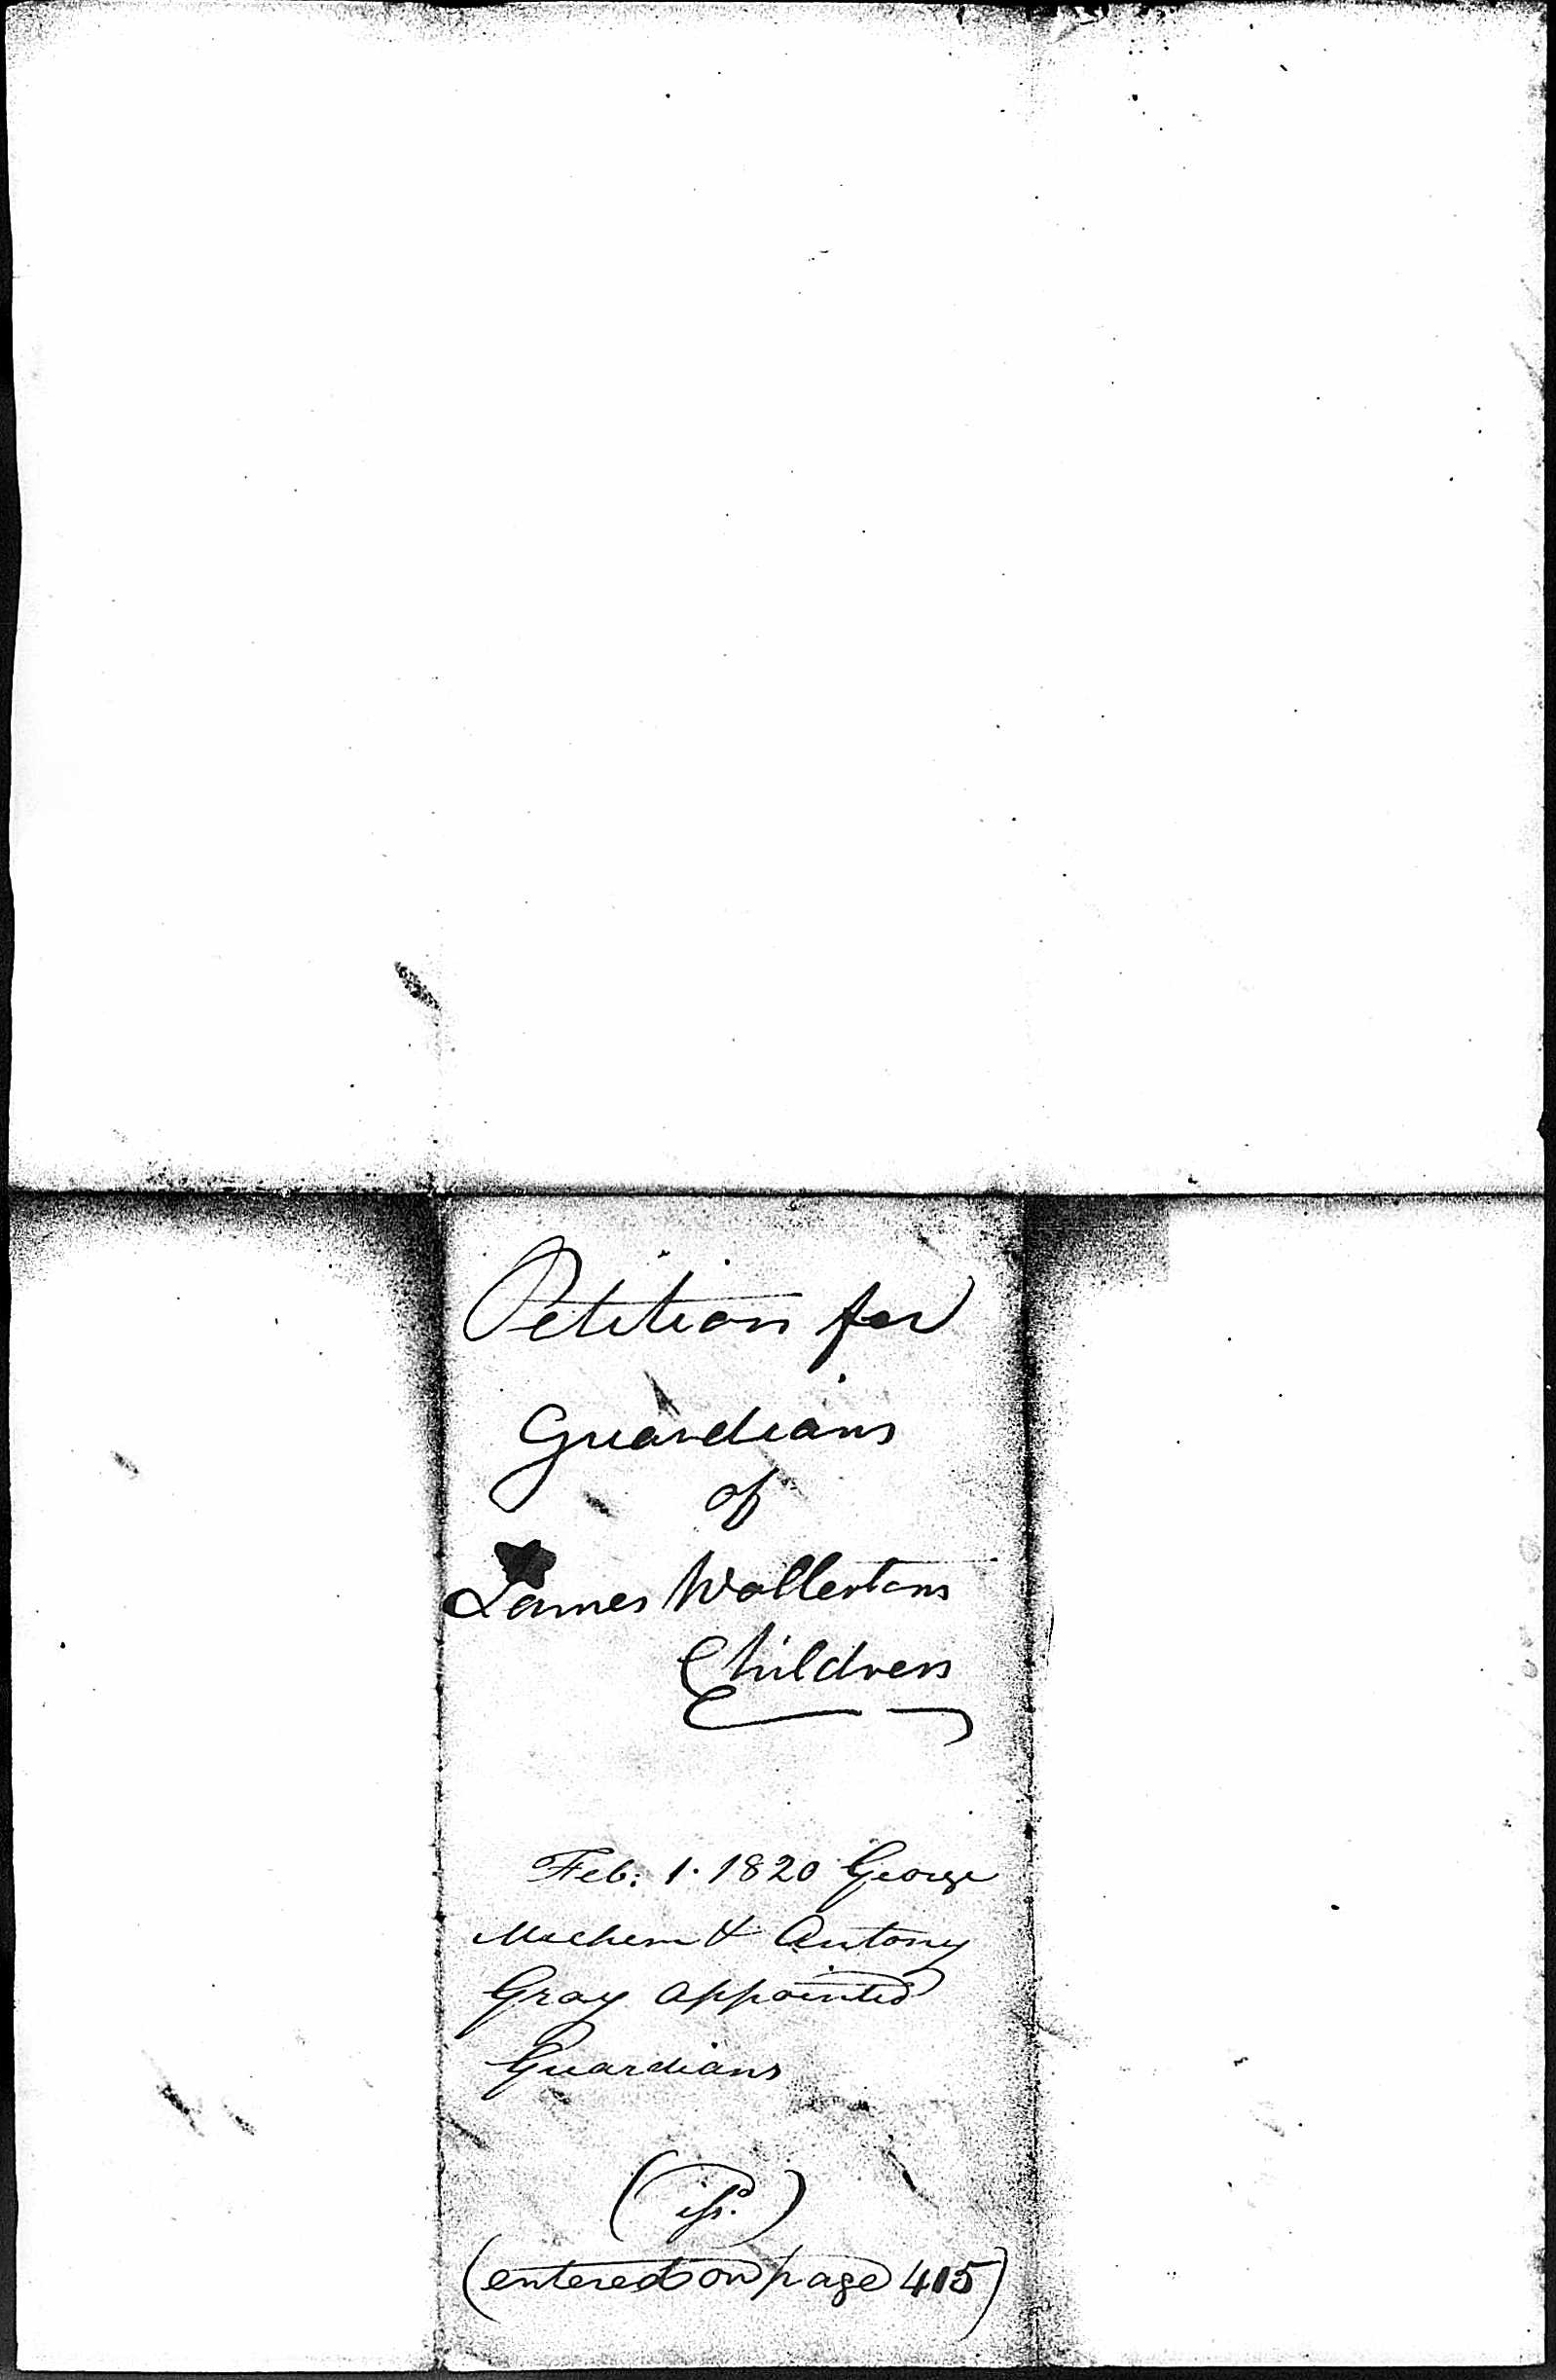 Petition for
Guardians
of
James Wollertons
Children
Feb: 1. 1820 George
Mechem & Antony
Gray appointed
Guardians
(issd.)
(entered on page 415)